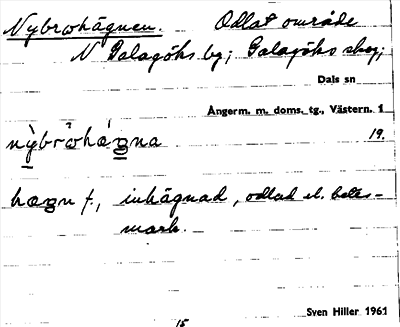 Nybrohägnen. Odlat område
N Galagöks by; Galagöks skog;
Dals sn
Ångerm. m. doms. tg., Västern. 1
nỳbrŏhágna 19.
hægn f., inhägnad, odlad el. betes-
mark.
Sven Hiller 1961
15